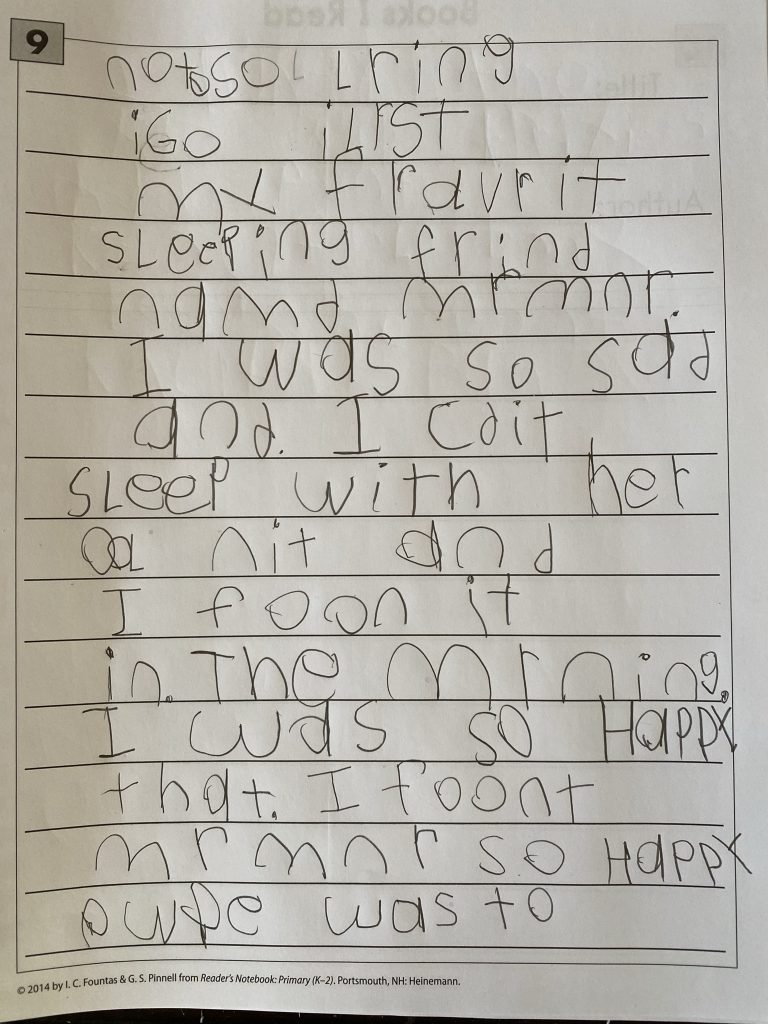 9
notosol Lring
iGo iLrST
my fravrit
sLeeping frind
namd mrmnr.
I was so sad
and. I cait
sLeep with her
a nit and
I foon it
in. The mrning.
I was so Happy
that. I foont
mrmnr so Happy
pwpe was to
© 2014 by I. C. Fountas & G. S. Pinnell from Reader's Notebook: Primary (K–2). Portsmouth, NH: Heinemann.